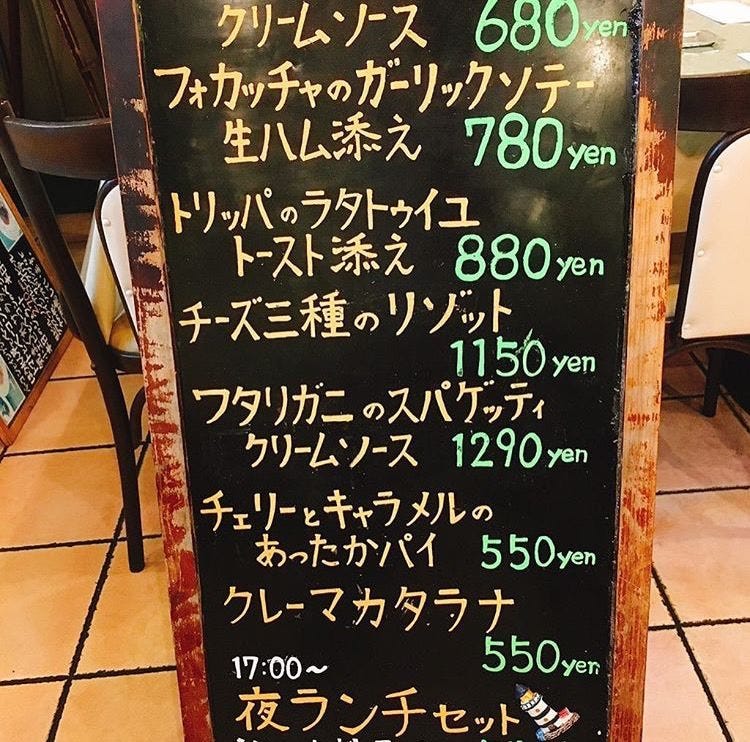 クリームソース 680yen
フォカッチャのガーリックソテー
生ハム添え 780yen
トリッパのラタトゥイユ
トースト添え 880yen
チーズ三種のリゾット
1150yen
ワタリガニのスパゲッティ
クリームソース 1290yen
チェリーとキャラメルの
あったかパイ 550yen
クレーマカタラナ
550yen
17:00〜
夜ランチセット